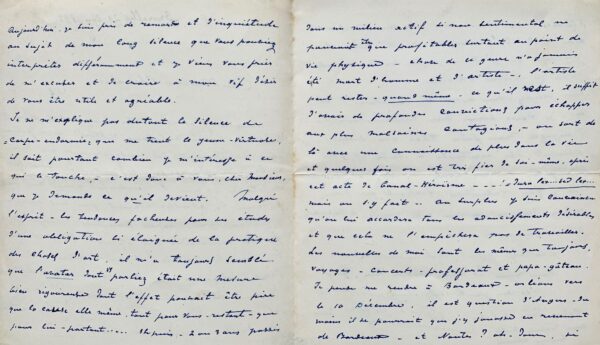 Aujourd'hui je suis pris de remords et d'inquiétude
au sujet de mon long silence que vous pourriez
interpréter différemment et je viens vous prier
de m'excuser et de croire à mon vif désir
de vous être utile et agréable.
Je ne m'explique pas du tout le silence de
Carpe-endormie, que me tient le jeune-virtuose,
il sait pourtant combien je m'intéresse à ce
qui le touche, - c'est donc à vous, cher Monsieur,
que je demande ce qu'il devient. Malgré
l'esprit - les tendances fâcheuses pour ses études
d'une obligation si éloignée de la pratique
des choses d'art, il m'a toujours semblé
que l'avatar dont vs parliez était une mesure
bien rigoureuse dont l'effet pouvait être pire
que la cause elle même, tant pour vous - restant - que
pour lui - partant.... Et puis - 2 ou 3 ans passés
dans un milieu actif si non sentimental ne
pourraient être que profitables surtout au point de
vie physique - chose de ce genre n'a jamais
été mort d'homme et d'artiste.. l'artiste
peut rester - quand même - ce qu'il est, il suffit
d'avoir de profondes convictions pour échapper
aux plus malsaines contagions, - on sort de
là avec une connaissance de plus dans la vie
et quelques fois on est très fier de soi-même, après
cet acte de banal-Héroïsme - ... Dura lex.. sed lex...
mais on s'y fait.. Au surplus je suis convaincu
qu'on lui accordera tous les adoucissements désirables
et que cela ne l'empêchera pas de travailler.
Les nouvelles de moi sont les mêmes que toujours,
voyages - concerts - professorat et papa-gâteau.
Je pense me rendre à Bordeaux - Orléans vers
le 10 Décembre, il est question d'Angers - du
moins il se pourrait que j'y jouasse en revenant
de Bordeaux - et Nantes ? ah - Dam, si